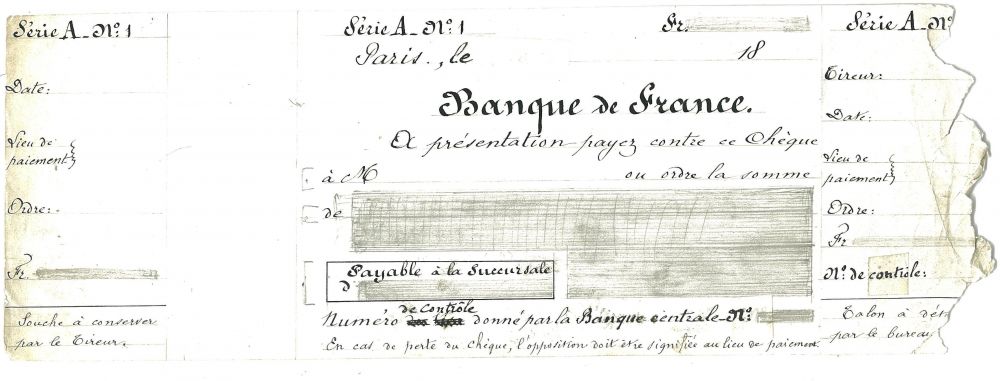 Série A_ N° 1
Date:
Lieu de
paiement
Ordre:
Fr.
Souche à conserver
par le Tireur.
Série A_ N° 1
Fr.
Paris., le 18
Banque de France.
A présentation payez contre ce Chèque
à M ou ordre la somme
de
Payable à la Succursale
d'
de contrôle
Numéro donné par la Banque centrale_N°
En cas de perte du chèque, l'opposition doit être signifiée au lieu de paiement.
Série A_ N°
Tireur:
Date:
Lieu de
paiement
Ordre:
Fr
N° de contrôle:
Talon à dét
par le bureau